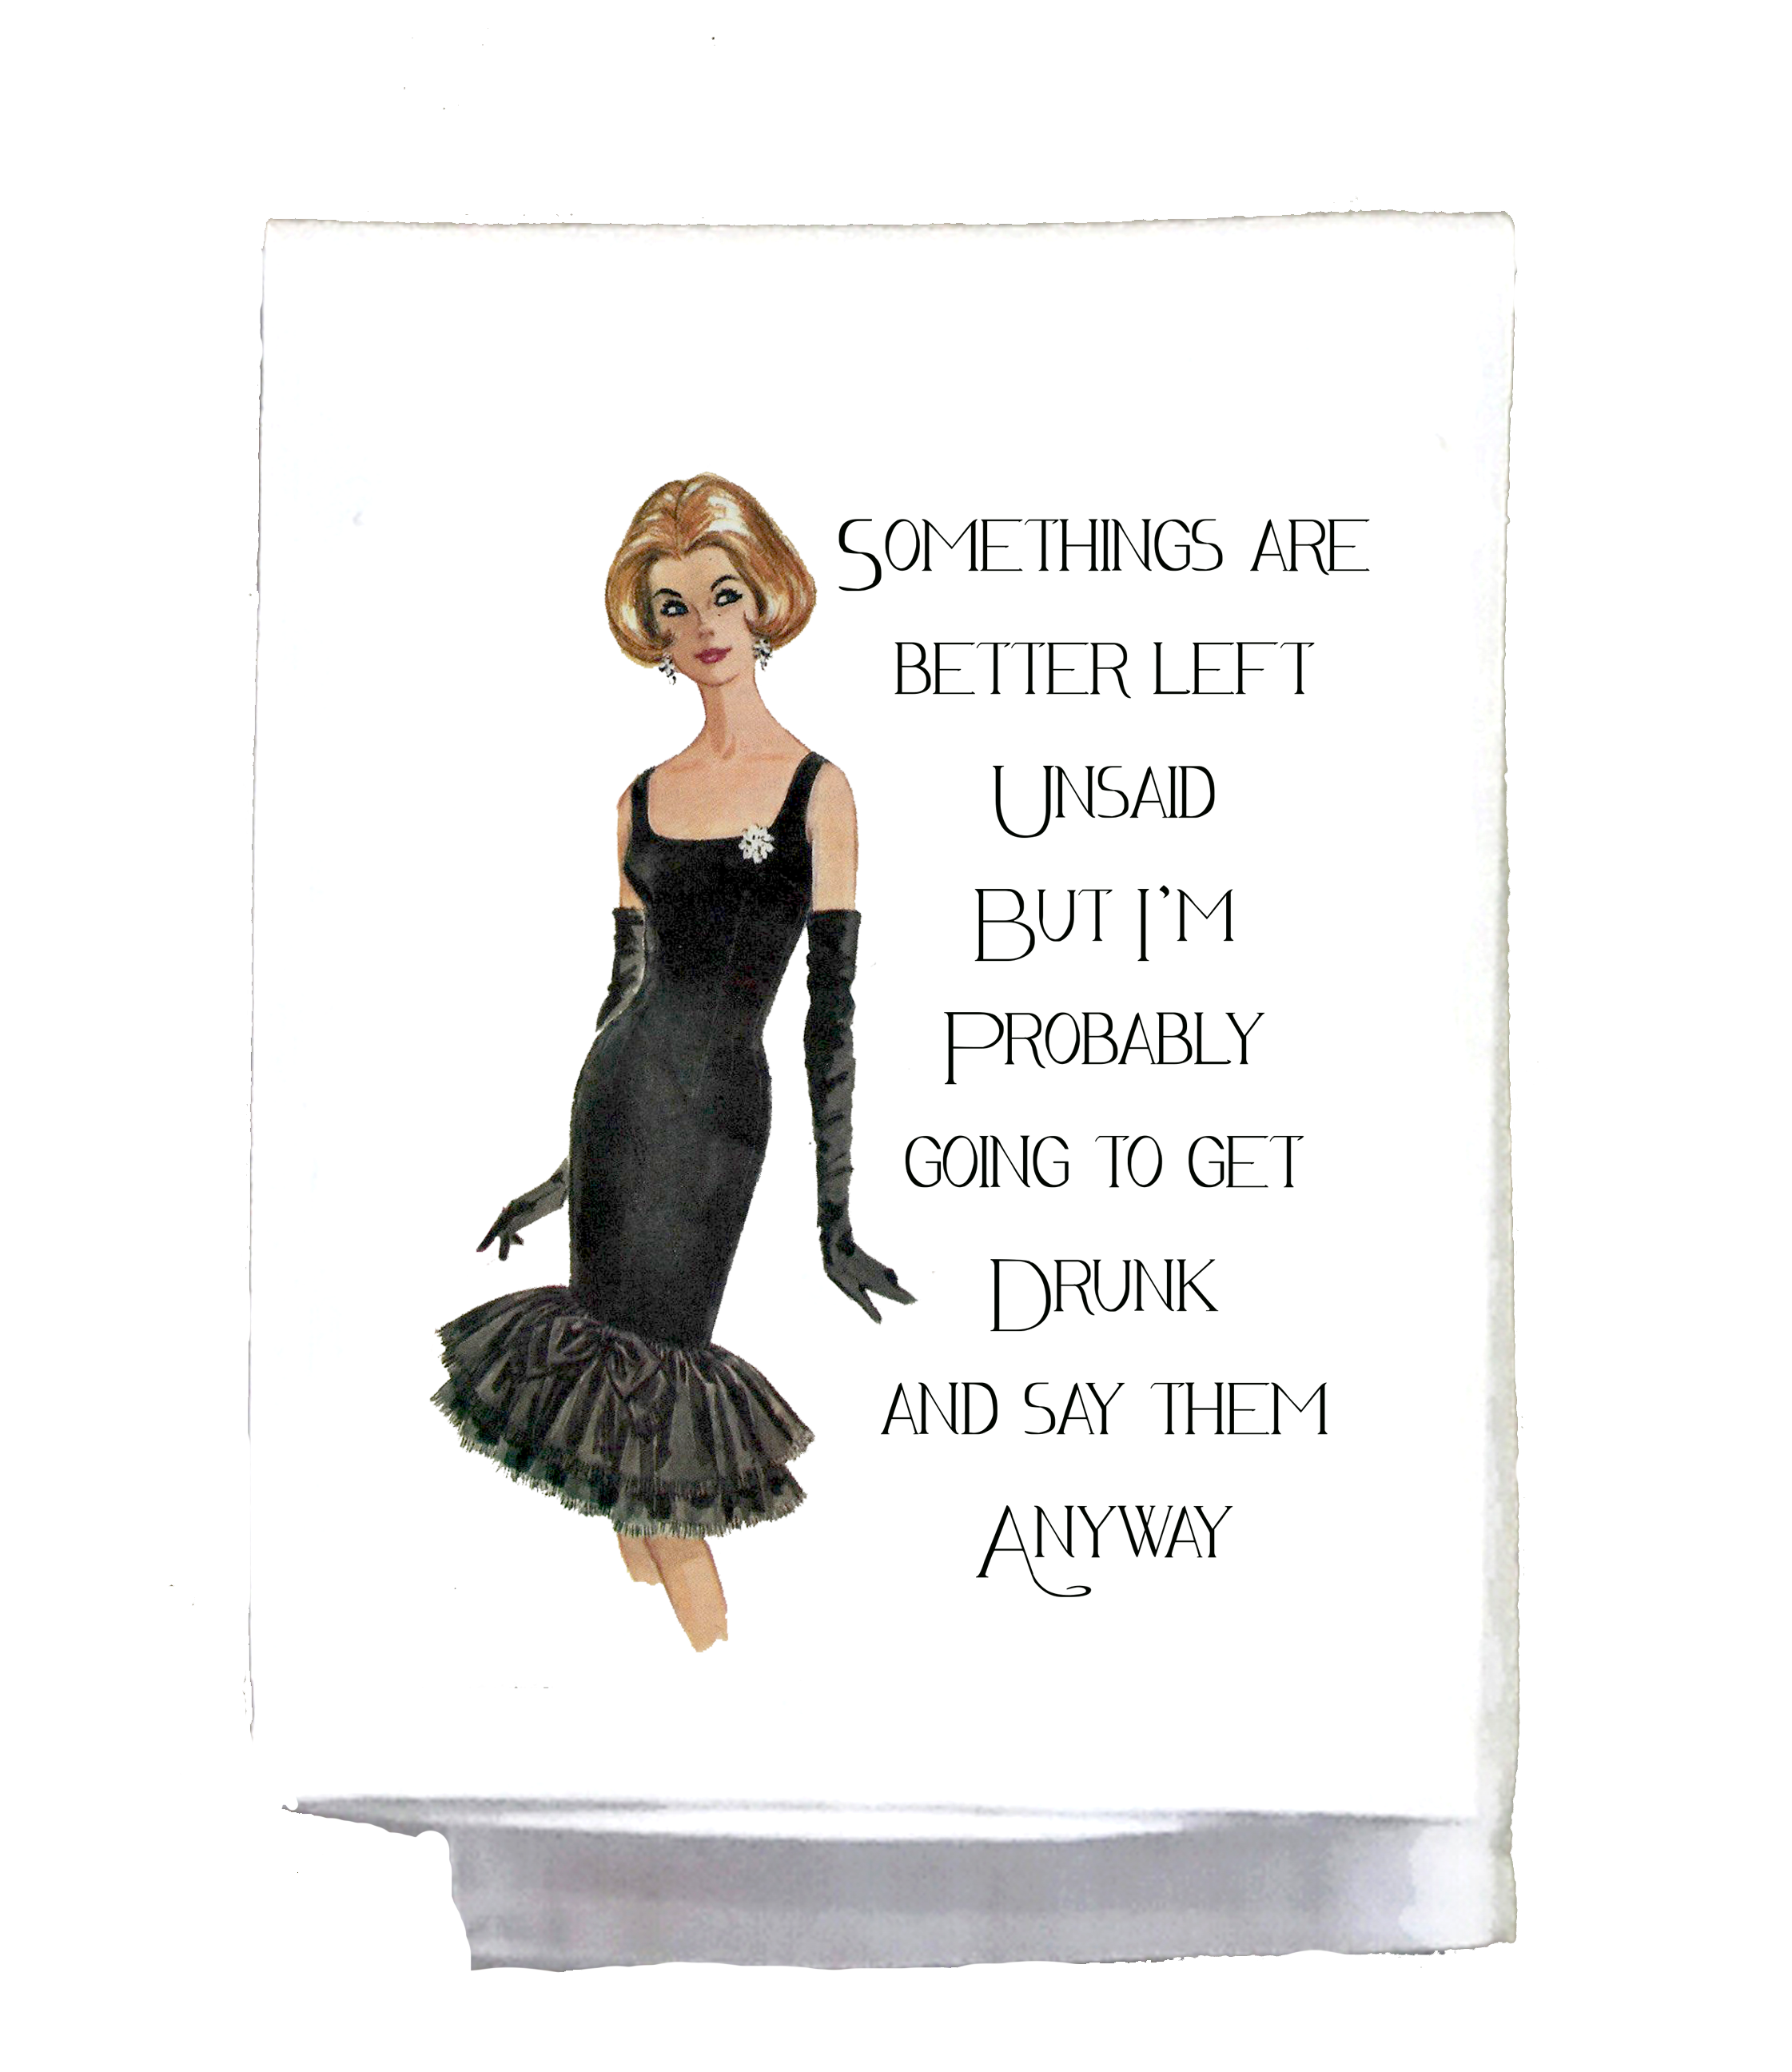 Somethings are
better left
Unsaid
But I'm
Probably
going to get
Drunk
and say them
Anyway